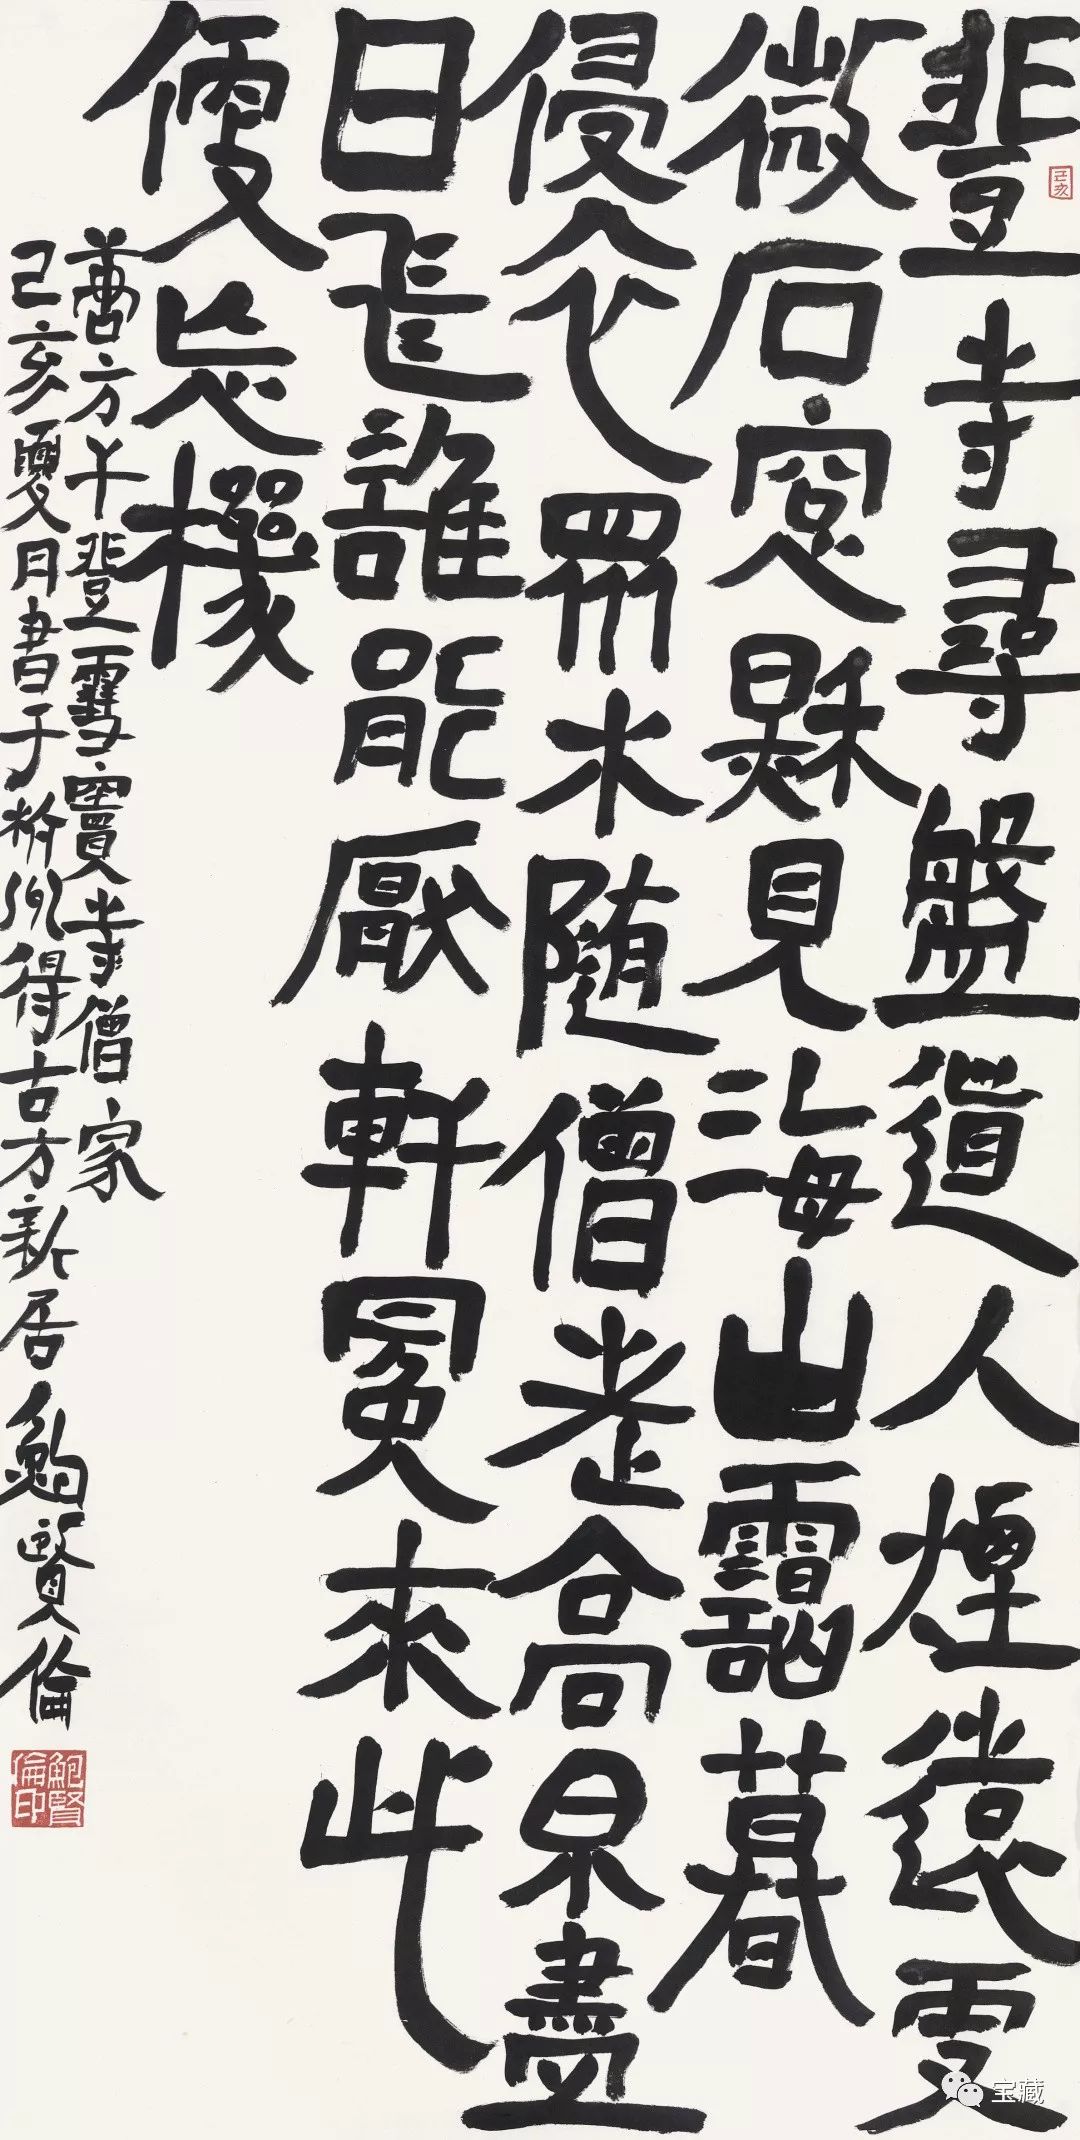 己亥
登寺尋盤道人煙遠更
微石窓秋見海山靄暮
侵衣眾木隨僧老高泉盡
日飛誰能厭軒冕來此
便忘機
唐方干登雪竇寺僧家
己亥夏月書于得古方新居鮑賢倫
鮑賢倫印
宝藏